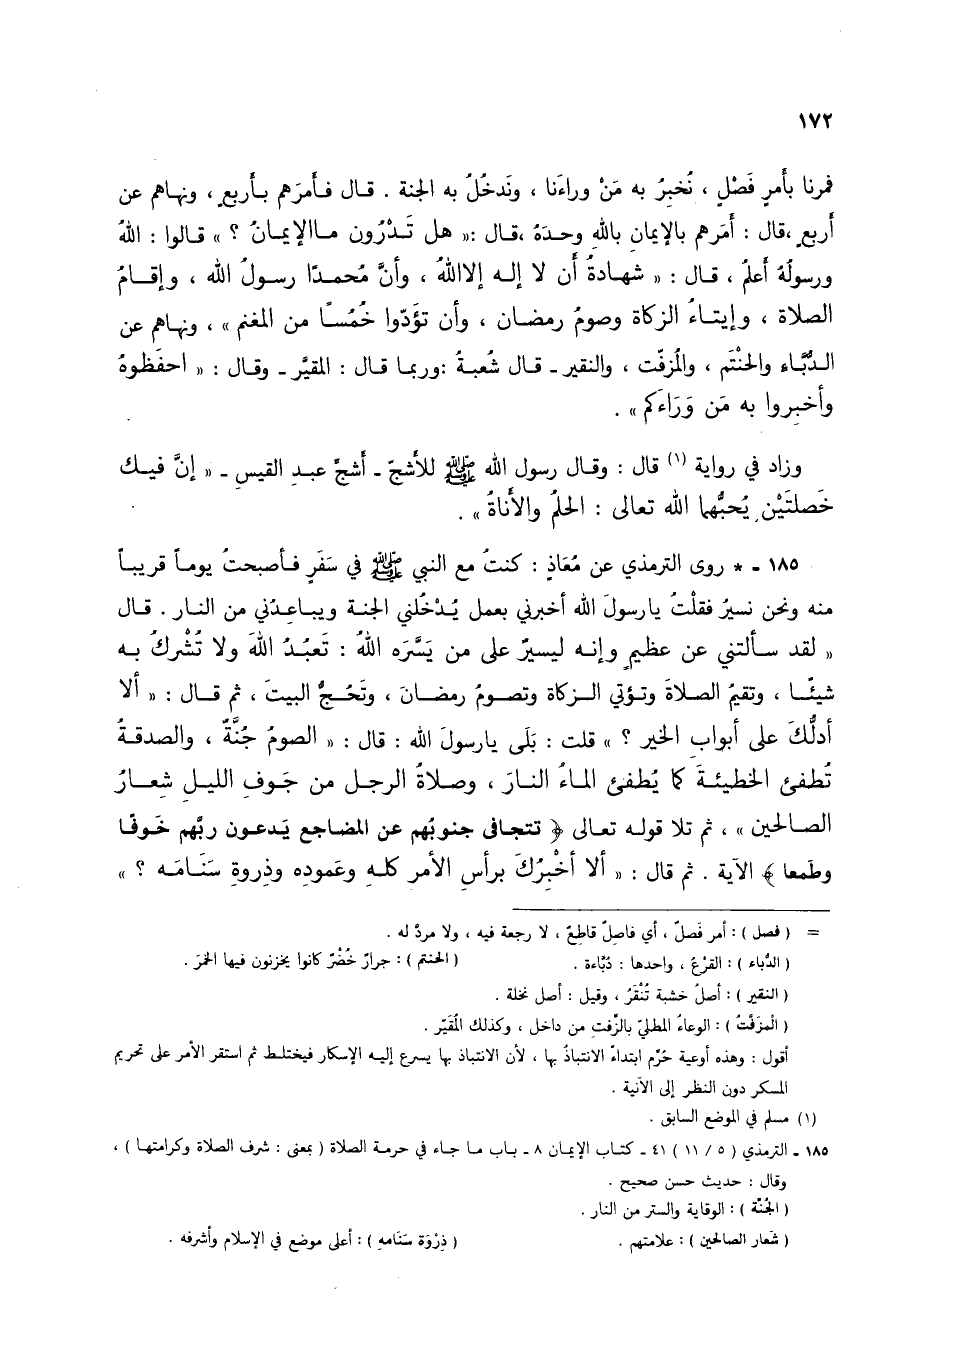 ١٧٢
فمرنا بأمرٍ فَصْلٍ ، نُخبِرُ به مَنْ وراءَنا ، ونَدخُلُ به الجنة . قـال فـأمرَهم بـأربعٍ ، ونهـاهم عن
أربعٍ ،قال : أمَرهم بالإيمان باللهِ وحدَهُ ،قـال :« هل تَـدْرُون مـاالإيمـانُ ؟ » قـالوا : اللهُ
ورسولُهُ أعلمُ ، قـال : « شهـادةُ أن لا إلـه إلااللهُ ، وأنَّ مُحمـدًا رسـولُ الله ، وإقـامُ
الصلاة ، وإيتـاءُ الزكاة وصومُ رمضـان ، وأن تؤَدّوا خُمُسـًا من المغنم » ، ونهـاهم عن
الـدُّبَّـاء والحَنْتَم ، والمُزفّت ، والنقير ـ قـال شُعبـةُ :وربمـا قـال : المقيَّر ـ وقـال : « احفَظـوهُ
وأخبِـروا به مَن وَرَاءَكم » .
وزاد في رواية (١) قال : وقـال رسول الله ﷺ للأشجِّ ـ أشجِّ عبـدِ القيسِ ـ « إنَّ فيـك
خَصلتَيْنِ يُحبُّهما الله تعالى : الحلمُ والأَناةُ » .
١٨٥ ـ * روى الترمذي عن مُعَاذٍ : كنتُ مع النبي ﷺ في سَفَرٍ فـأصبحتُ يومـاً قريبـاً
منه ونحن نسيرُ فقلْتُ يارسولَ الله أخبرني بعمل يُـدْخُلني الجنـة ويبـاعـدُني من النـار . قـال
« لقد سـألتني عن عظيمٍ وإنـه ليسيرٌ على من يَسَّرَه اللهُ : تَعبُـدُ اللهَ ولا تُشْركُ بـه
شيئًـا ، وتقيمُ الصلاةَ وتـؤتي الـزكاة وتصـومُ رمضـانَ ، وتَحُـجُّ البيتَ ، ثم قـال : « ألا
أدلُّكَ على أبوابِ الخير ؟ » قلت : بَلَى يارسولَ الله : قال : « الصومُ جُنَّةٌ ، والصدقـةُ
تُطفئ الخطيئـةَ كما يُطفئ المـاءُ النـارَ ، وصـلاةُ الرجـل من جَـوفِ الليـل شِعـارُ
الصـالحين » ، ثم تلا قولـه تعالى ﴿ تتجافى جنوبُهم عن المضاجع يَـدعـون ربَّهم خَـوفًـا
وطَمعا ﴾ الآية . ثم قال : « ألا أخْبِرُكَ برأسِ الأمر كلـهِ وعَموده وذِروةِ سَنَامَـه ؟ »
= ( فصل ) : أمر فَصلٌ ، أي فاصِلٌ قاطِعٌ ، لا رجعة فيه ، ولا مردَّ له .
( الدُّباء ) : القرْعُ ، واحدها : دُبَّاءة . ( الحنتم ) : جرارٌ خُضْرٌ كانوا يخزنون فيها الخمرَ .
( النقير ) : أصلُ خشبة تُنْقَرُ ، وقيل : أصل نخلة .
( الْمزَفَّتُ ) : الوعاءُ المطليّ بالزَّفتِ من داخل ، وكذلك المُقَيَّر .
أقول : وهذه أوعية حَرّم ابتداءً الانتباذُ بها ، لأن الانتباذ بها يسرع إليـه الإسكار فيختلـط ثم استقر الأمر على تحريم
المسكر دون النظر إلى الآنية .
(١) مسلم في الموضع السابق .
١٨٥ ـ الترمذي ( ٥ / ١١ ) ٤١ ـ كتـاب الإيمـان ٨ ـ بـاب مـا جـاء في حرمـة الصلاة ( بمعنى : شرف الصلاة وكرامتهـا ) ،
وقال : حديث حسن صحيح .
( الجُنّة ) : الوقاية والستر من النار .
( شعار الصالحين ) : علامتهم . ( ذِرْوَة سَنَامهِ ) : أعلى موضع في الإسلام وأشرفه .